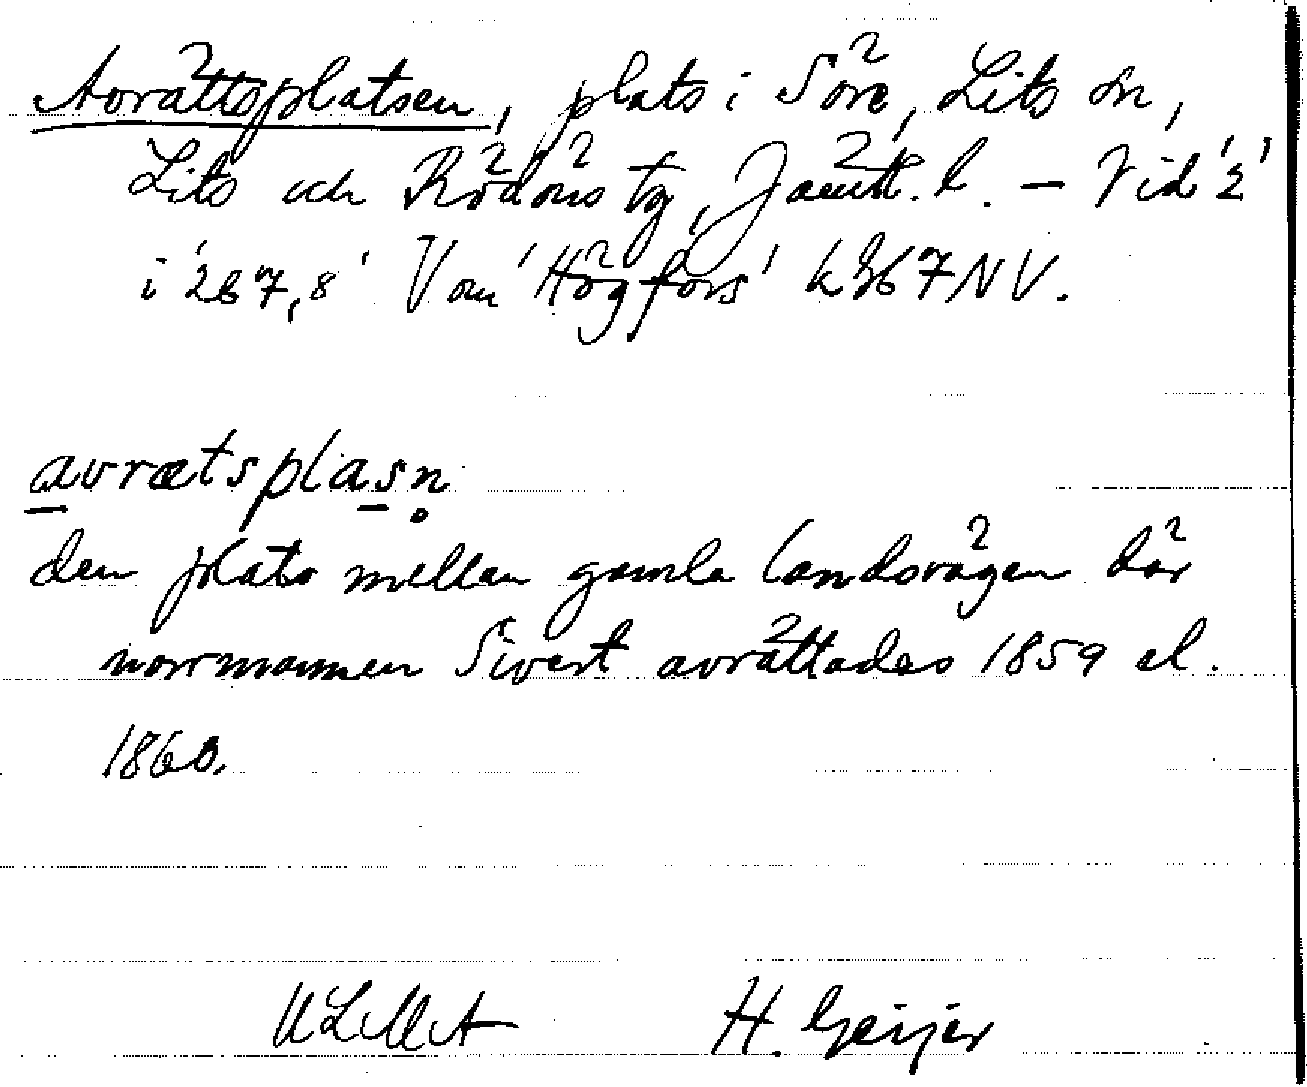 Avrättsplatsen, plats i Söre, Lits sn,
Lits och Rödöns tg, Jämtl. l. – Vid '2'
i '267,8' V om 'Högfors' k 367 NV.
avrætsplasn̥
den plats mellan gamla landsvägen där
norrmannen Sivert avrättades 1859 el.
1860.
ULMA H. Geijer